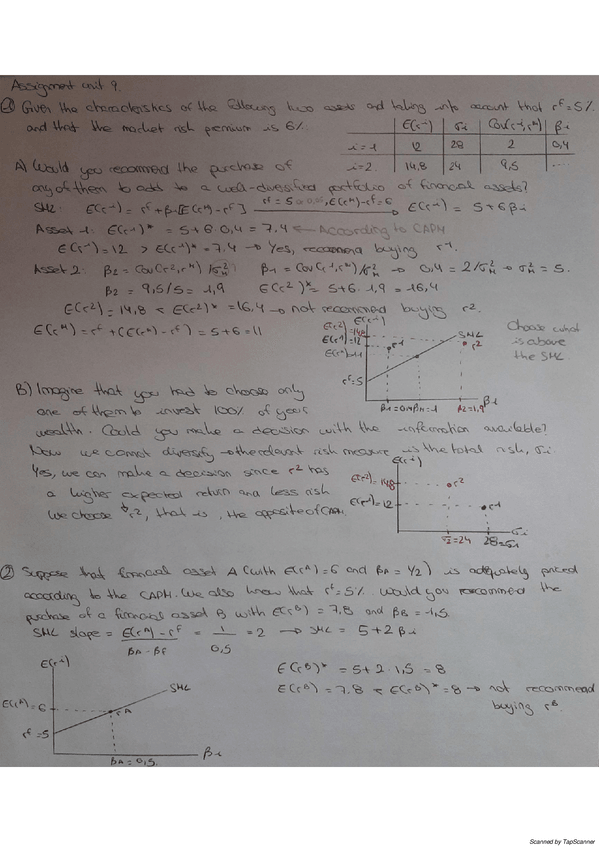 Assignment unit 9.
① Given the characteristics of the following two assets and taking into account that r^f = 5%
and that the market risk premium is 6%.
E(r^i) σi Cov(r^i, r^M) βi
i=1 12 28 2 0,4
i=2 14,8 24 9,5 ....
A) Would you recommend the purchase of
any of them to add to a well-diversified portfolio of financial assets?
SML: E(r^i) = r^f + βi [E(r^M) - r^f] r^f = 5 = 0,05, E(r^M) - r^f = 6 → E(r^i) = 5 + 6βi
Asset 1: E(r^1)* = 5 + 6 · 0,4 = 7.4 ← According to CAPM
E(r^1) = 12 > E(r^1)* = 7,4 → Yes, recommend buying r^1.
Asset 2: β2 = Cov(r^2, r^M)/σ²M β1 = Cov(r^1, r^M)/σ²M → 0,4 = 2/σ²M → σ²M = 5.
β2 = 9,5/5 = 1,9 E(r^2)* = 5 + 6 · 1,9 = 16,4
E(r^2) = 14,8 < E(r^2)* = 16,4 → not recommend buying r^2.
E(r^M) = r^f + (E(r^M) - r^f) = 5 + 6 = 11
E(r^i)
E(r^2) = 14,8
E(r^1) = 12
E(r^M) = 11
r^f = 5
SML
r^1
r^2
β1 = 0,4 βM = 1 β2 = 1,9 βi
Choose what
is above
the SML
B) Imagine that you had to choose only
one of them to invest 100% of your
wealth. Could you make a decision with the information available?
Now we cannot diversify → the relevant risk measure is the total risk, σi.
Yes, we can make a decision since r^2 has
a higher expected return and less risk
We choose r^2, that is, the opposite of CAPM.
E(r^i)
E(r^2) = 14,8
r^2
E(r^1) = 12
r^1
σ2 = 24 28 = σ1 σi
② Suppose that financial asset A (with E(r^A) = 6 and βA = 1/2) is adequately priced
according to the CAPM. We also know that r^f = 5%. Would you recommend the
purchase of a financial asset B with E(r^B) = 7,8 and βB = 1,5.
SML slope = E(r^A) - r^f / βA - βf = 1 / 0,5 = 2 → SML = 5 + 2βi
E(r^i)
E(r^A) = 6
r^f = 5
r^A
SML
βA = 0,5
βi
E(r^B)* = 5 + 2 · 1,5 = 8
E(r^B) = 7.8 < E(r^B)* = 8 → not recommend
buying r^B.
Scanned by TapScanner